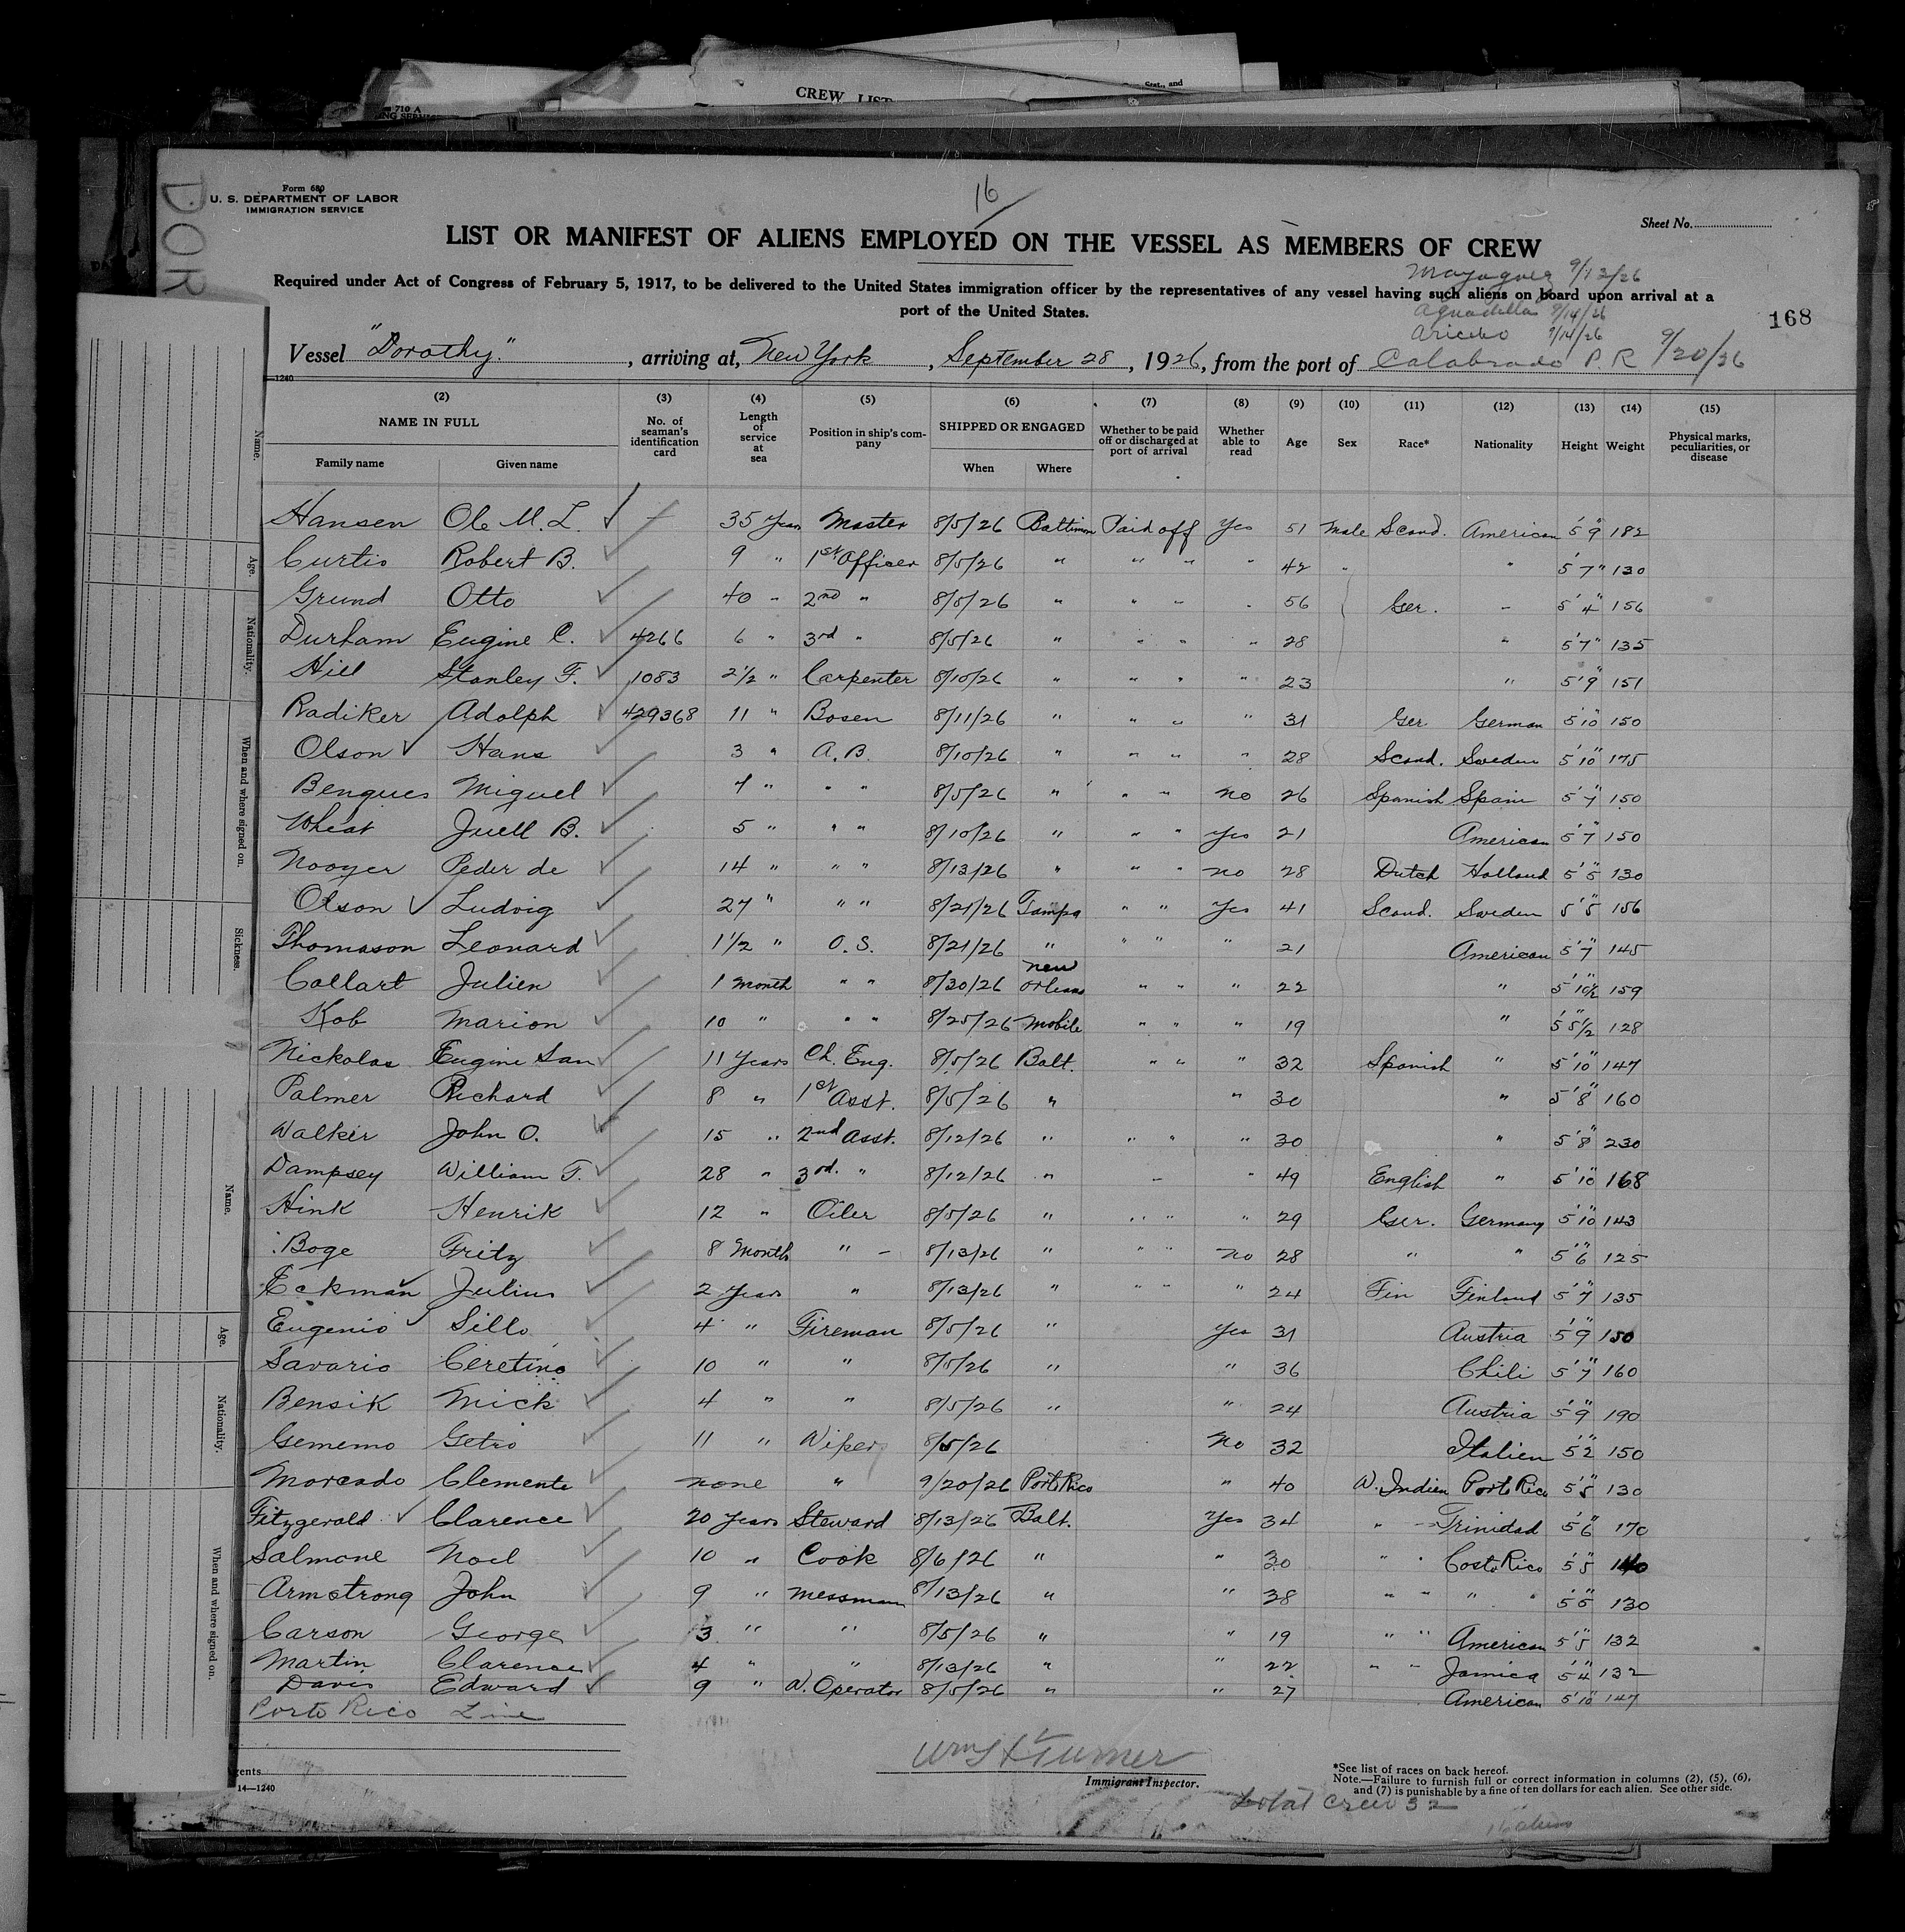 CREW LIST
Stat., and
710 A
DOR
Form 680
U. S. DEPARTMENT OF LABOR
IMMIGRATION SERVICE
16
Sheet No.
LIST OR MANIFEST OF ALIENS EMPLOYED ON THE VESSEL AS MEMBERS OF CREW
Required under Act of Congress of February 5, 1917, to be delivered to the United States immigration officer by the representatives of any vessel having such aliens on board upon arrival at a
port of the United States.
Mayaguez 9/13/26
Aguadilla 9/14/26
Aricibo 9/14/26
168
Vessel "Dorothy", arriving at, New York, September 28, 1926, from the port of Calabrado P. R 9/20/26
(2) (3) (4) (5) (6) (7) (8) (9) (10) (11) (12) (13) (14) (15)
NAME IN FULL No. of seaman's identification card Length of service at sea Position in ship's company SHIPPED OR ENGAGED Whether to be paid off or discharged at port of arrival Whether able to read Age Sex Race* Nationality Height Weight Physical marks, peculiarities, or disease
Family name Given name When Where
Hansen Ole M. L. 35 Years Master 8/5/26 Baltimore Paid off Yes 51 Male Scand. American 5'9" 182
Curtis Robert B. 9 " 1st Officer 8/5/26 " " " " 42 " " 5'7" 130
Grund Otto 40 " 2nd " 8/5/26 " " " " 56 Ger. " 5'4" 156
Durham Eugine C. 4266 6 " 3rd " 8/5/26 " " " " 28 " 5'7" 135
Hill Stanley F. 1083 2 1/2 " Carpenter 8/10/26 " " " " 23 " 5'9" 151
Radiker Adolph 429368 11 " Bosen 8/11/26 " " " " 31 Ger. German 5'10" 150
Olson Hans 3 " A. B. 8/10/26 " " " " 28 Scand. Sweden 5'10" 175
Bengues Miguel 7 " " " 8/5/26 " " " no 26 Spanish Spain 5'7" 150
Wheat Juell B. 5 " " " 8/10/26 " " " Yes 21 American 5'7" 150
Nooyer Peder de 14 " " " 8/13/26 " " " no 28 Dutch Holland 5'5" 130
Olson Ludvig 27 " " " 8/21/26 Tampa " " Yes 41 Scand. Sweden 5'5" 156
Thomason Leonard 1 1/2 " O. S. 8/21/26 " " " " 21 American 5'7" 145
Collart Julien 1 month " " 8/30/26 New Orleans " " " 22 " 5'10 1/2" 159
Kob Marion 10 " " " 8/25/26 Mobile " " " 19 " 5'5 1/2" 128
Nickolas Eugine San 11 Years Ch. Eng. 8/5/26 Balt. " " " 32 Spanish " 5'10" 147
Palmer Richard 8 " 1st Asst. 8/5/26 " " 30 " 5'8" 160
Walker John O. 15 " 2nd Asst. 8/12/26 " " " " 30 " 5'8" 230
Dampsey William T. 28 " 3rd. " 8/12/26 " " " 49 English " 5'10" 168
Hink Henrik 12 " Oiler 8/5/26 " " " " 29 Ger. Germany 5'10" 143
Boge Fritz 8 Month " 8/13/26 " " " no 28 " " 5'6" 125
Eckman Julius 2 Years " 8/13/26 " " " " 24 Fin Finland 5'7" 135
Eugenio Sillo 4 " Fireman 8/5/26 " Yes 31 Austria 5'9" 150
Savario Ceretino 10 " " 8/5/26 " " 36 Chili 5'7" 160
Bensik Mick 4 " " 8/5/26 " " 24 Austria 5'9" 190
Gememo Getro 11 " Wiper 8/5/26 No 32 Italien 5'2" 150
Morcado Clemente none " 9/20/26 Porto Rico " 40 W. Indien Porto Rico 5'5" 130
Fitzgerald Clarence 20 Years Steward 8/13/26 Balt. Yes 34 " " Trinidad 5'6" 170
Salmone Noel 10 " Cook 8/6/26 " " 30 " " Costo Rico 5'5" 140
Armstrong John 9 " Messman 8/13/26 " " 38 " " " " 5'5" 130
Carson George 3 " " 8/5/26 " " 19 " " American 5'5" 132
Martin Clarence 4 " " 8/13/26 " " 22 " " Jamica 5'4" 132
Davis Edward 9 " W. Operator 8/5/26 " " 27 American 5'10" 147
Porto Rico Line
gents
14—1240
Immigrant Inspector.
*See list of races on back hereof.
Note.—Failure to furnish full or correct information in columns (2), (5), (6),
and (7) is punishable by a fine of ten dollars for each alien. See other side.
Total crew 32
16 aliens
Name.
Age.
Nationality.
When and where signed on.
Sickness.
Name.
Age.
Nationality.
When and where signed on.